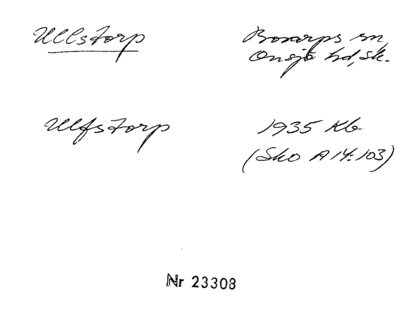 Ullstorp
Bosarps sn,
Onsjö hd, Sk.
Ulfstorp
1935 Kb
(Sko A 14:103)
Nr 23308